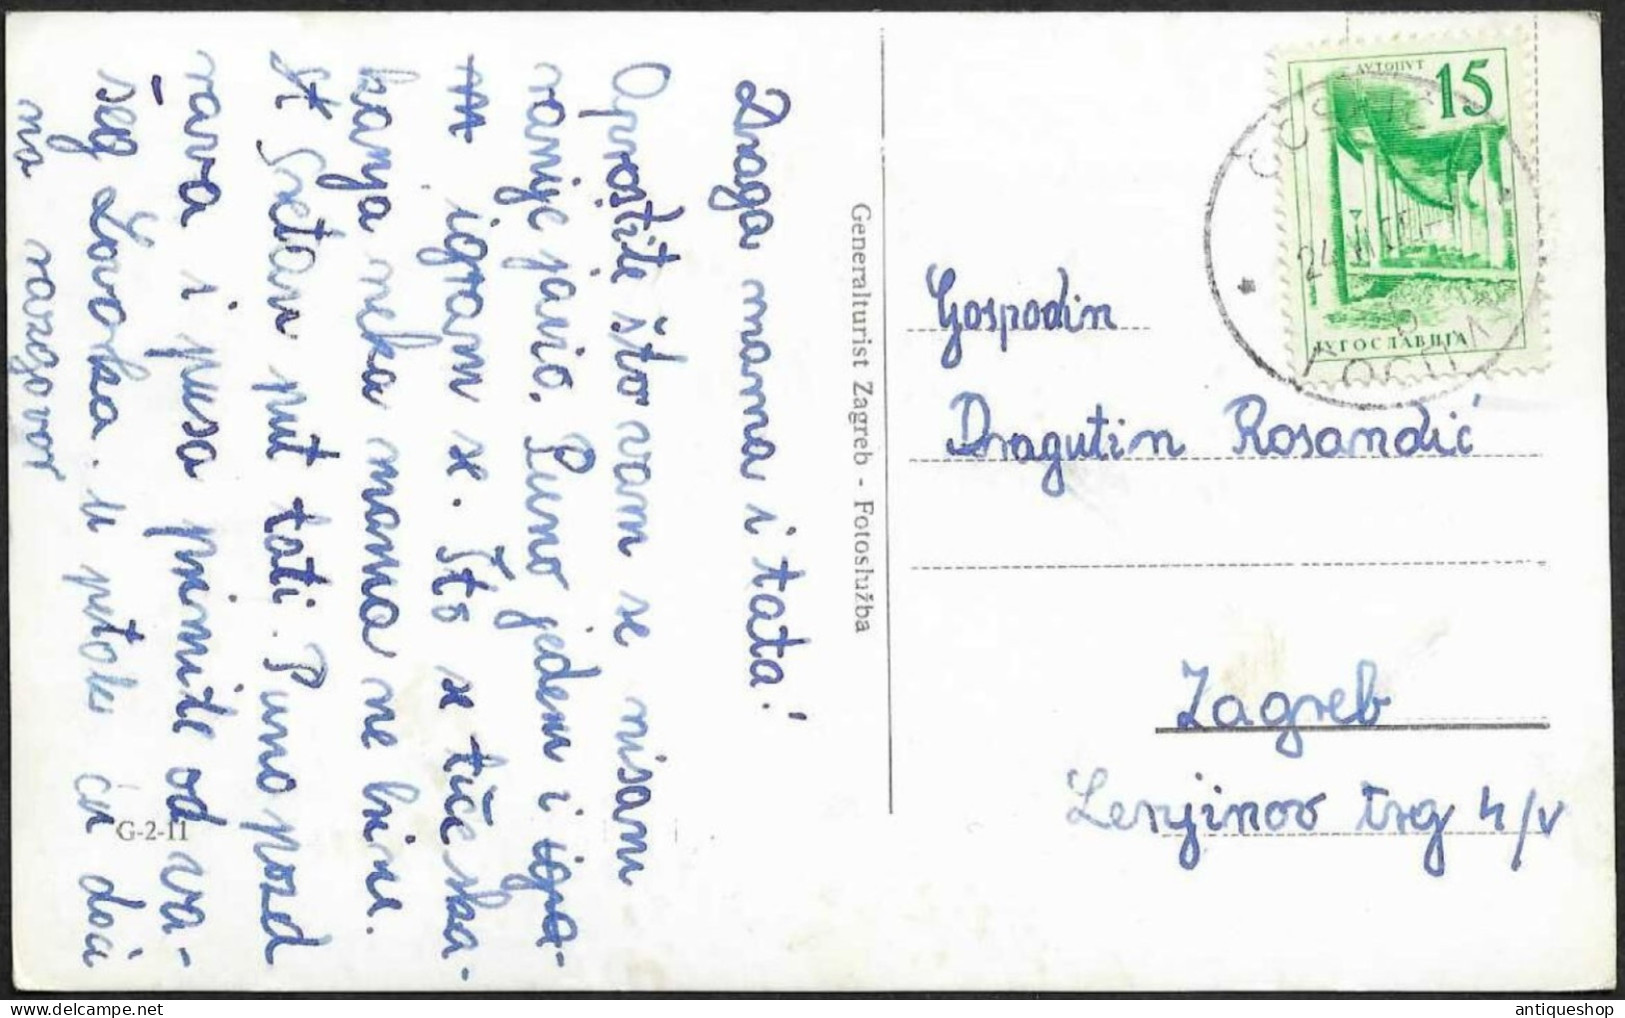 Draga mama i tata!
Oprostite što vam se nisam
ranije javio. Puno jedem i igra-
m igram se. Što se tiče ska-
kanja neka mama ne brine.
St Sretan put tati. Puno pozd
rava i pusa primite od va-
šeg Lovorka. u petak ću doći
na razgovor
G-2-11
Generalturist Zagreb - Fotoslužba
АУТОПУТ
15
ЈУГОСЛАВИЈА
24.VI
Gospodin
Dragutin Rosandić
Zagreb
Lenjinov trg 4/V
antiqueshop